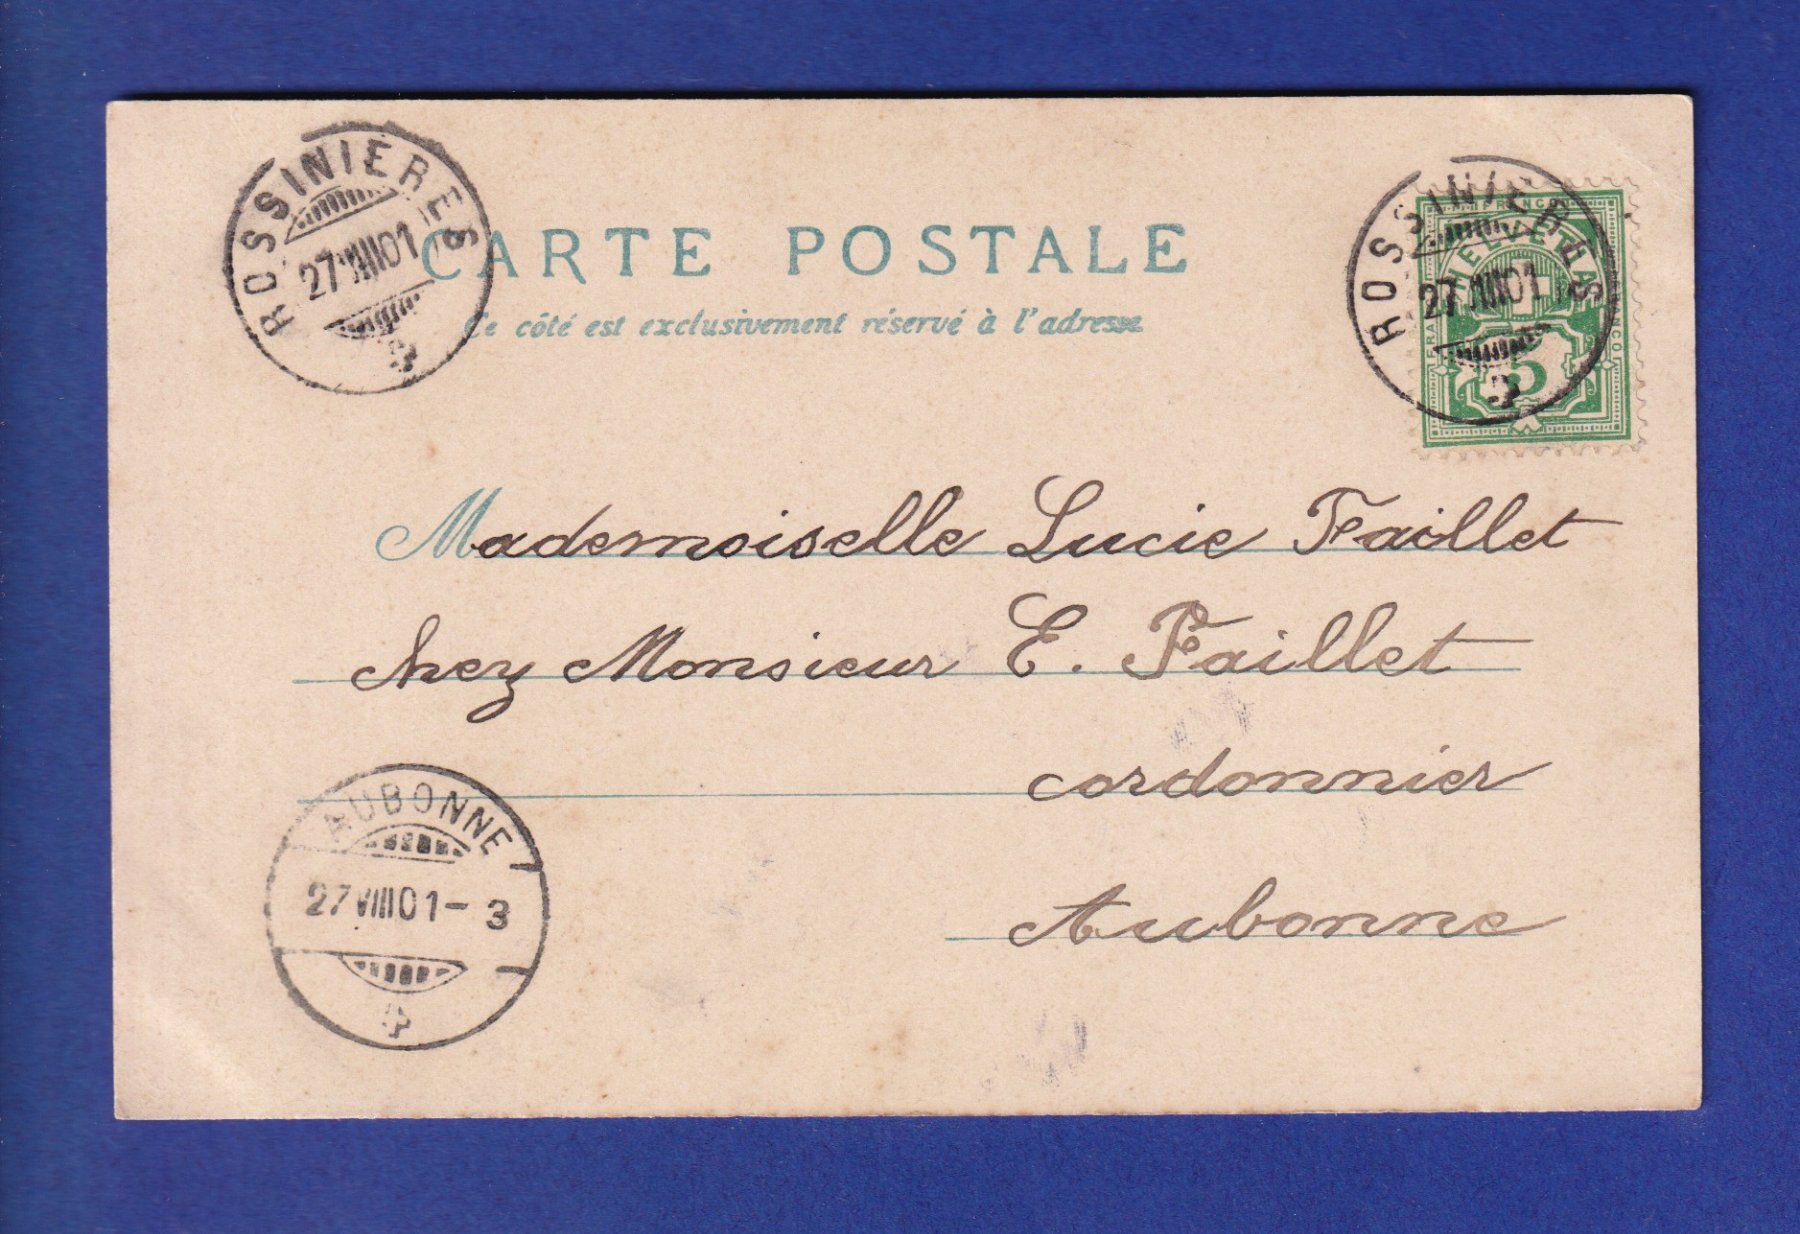 ROSSINIERES
27 VIII 01
CARTE POSTALE
Ce côté est exclusivement réservé à l'adresse
ROSSINIERES
27 VIII 01
FRANCO
HELVETIA
FRANCO
FRANCO
5
Mademoiselle Lucie Faillet
chez Monsieur E. Faillet
cordonnier
Aubonne
AUBONNE
27 VIII 01 - 3